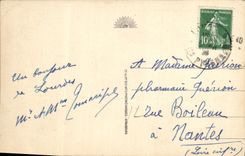 Un bonjour
de Lourdes
Mr et Mme
A Madame Guérion
pharmacie Guérion
2 rue Boileau
à Nantes
(Loire infre)
10